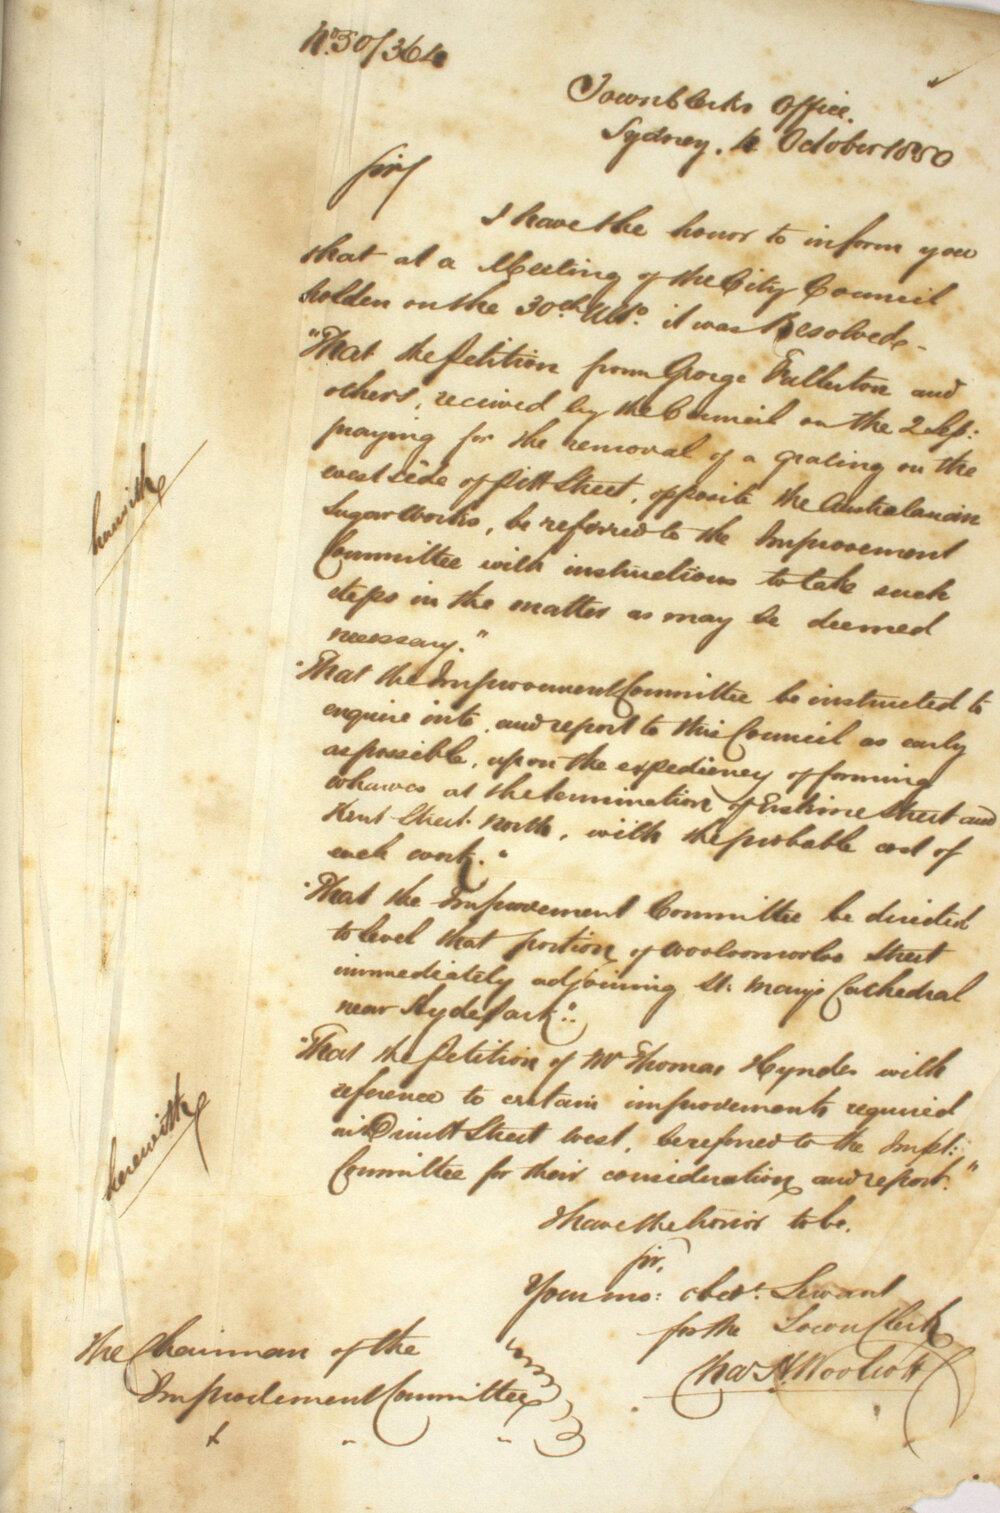 No. 50/364
Town Clerks Office.
Sydney. 4 October 1850
Sir/
I have the honor to inform you
that at a Meeting of the City Council
holden on the 30th Ulto. it was Resolved -
"That the Petition from George Fullerton and
others, received by the Council on the 2 Sep:
praying for the removal of a grating on the
west side of Pitt Street, opposite the Australasian
Sugar Works, be referred to the Improvement
Committee with instructions to take such
steps in the matter as may be deemed
necessary."
herewith
"That the Improvement Committee be instructed to
enquire into, and report to this Council as early
as possible, upon the expediency of forming
wharves at the termination of Erskine Street and
Kent Street North, with the probable cost of
each work."
"That the Improvement Committee be directed
to level that portion of Woolloomooloo Street
immediately adjoining St. Mary's Cathedral
near Hyde Park".
"That the Petition of Mr Thomas Hyndes with
reference to certain improvements required
in Druitt Street West, be referred to the Impt:
Committee for their consideration and report."
herewith
I have the honor to be.
Sir,
Your mo: obedt. Servant
for the Town Clerk
Chas H. Woolcott
The Chairman of the
Improvement Committee